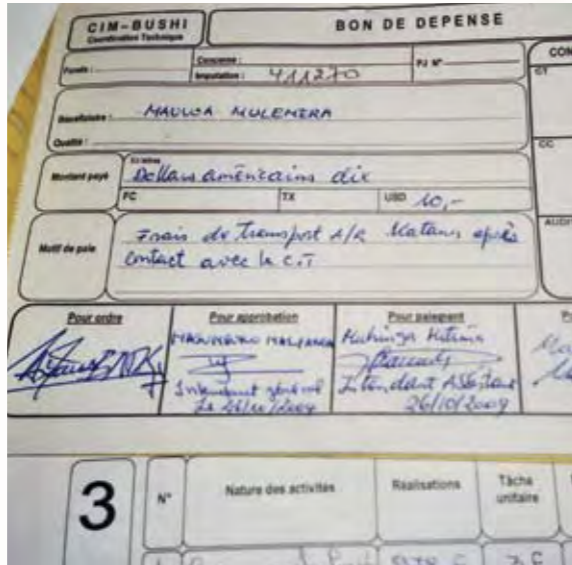 CIM-BUSHI
Coordination Technique
BON DE DEPENSE
Fonds :
Concerne :
Imputation : 411270
PJ N°
CON
CT
Bénéficiaire : MAULOA MULEMERA
Qualité :
CC
Montant payé
En lettres
Dollars américains dix
FC
TX
USD 10,-
AUDI
Motif de paie
Frais de transport A/R Katana après
contact avec le C.T
Pour ordre
Pour approbation
Pour paiement
Intendant général
Le 26/10/2009
Intendant Assistant
26/10/2009
3
N°
Nature des activités
Réalisations
Tâche
unitaire